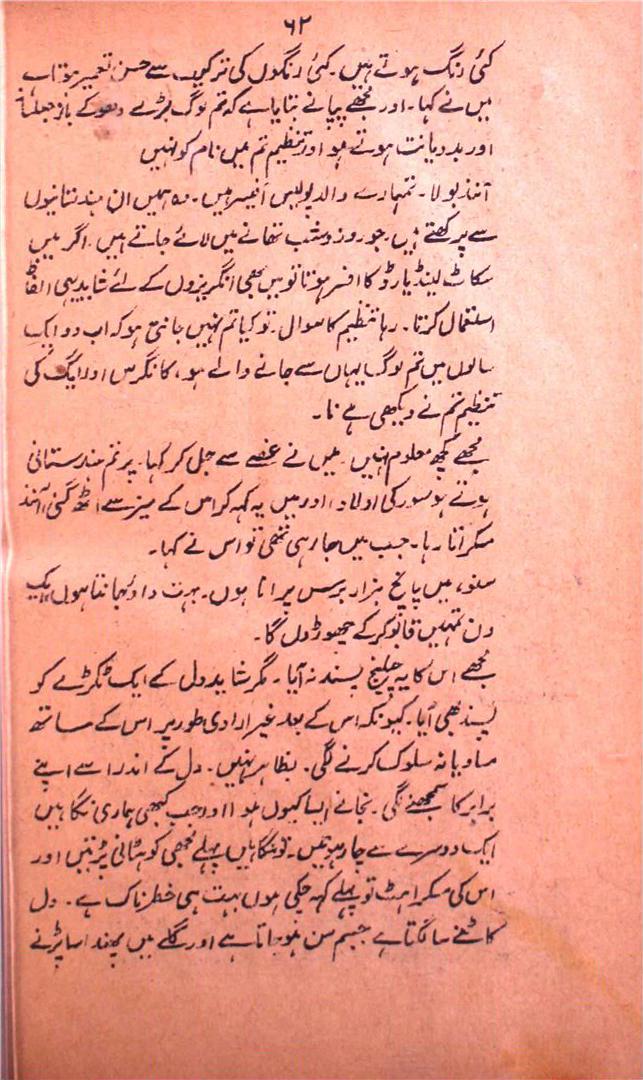 ۶۲
کئی رنگ ہوتے ہیں۔ کئی رنگوں کی ترکیب سے حسن تعمیر ہوتا ہے
میں نے کہا۔ اور مجھے پپا نے بتایا ہے کہ تم لوگ بڑے دھوکے باز جعلساز
اور بددیانت ہوتے ہو اور تنظیم تم میں نام کو نہیں
آنند بولا۔ تمہارے والد پولیس آفیسر ہیں۔ وہ ہمیں ان ہندستانیوں
سے پرکھتے ہیں۔ جو روز و شب تھانے میں لائے جاتے ہیں۔ اگر میں
سکاٹ لینڈ یارڈ کا افسر ہوتا تو میں بھی انگریزوں کے لئے شاید یہی الفاظ
استعمال کرتا۔ رہا تنظیم کا سوال۔ تو کیا تم نہیں جانتی ہو کہ اب دو ایک
سالوں میں تم لوگ یہاں سے جانے والے ہو، کانگرس اور لیگ کی
تنظیم تم نے دیکھی ہے نا۔
مجھے کچھ معلوم نہیں۔ میں نے غصے سے جل کر کہا۔ پر تم ہندستانی
ہوتے ہو سور کی اولاد، اور میں یہ کہہ کر اس کے میز سے اٹھ گئی، آنند
مسکراتا رہا۔ جب میں جا رہی تھی تو اس نے کہا۔
سنو، میں پانچ ہزار برس پرانا ہوں۔ بہت داؤ جانتا ہوں ایک
دن تمہیں قابو کر کے چھوڑوں گا۔
مجھے اس کا یہ چیلنج پسند نہ آیا۔ مگر شاید دل کے ایک ٹکڑے کو
پسند بھی آیا۔ کیونکہ اس کے بعد غیر ارادی طور پر اس کے ساتھ
مساویانہ سلوک کرنے لگی۔ بظاہر نہیں۔ دل کے اندر اسے اپنے
برابر کا سمجھنے لگی۔ نجانے ایسا کیوں ہوا اور جب کبھی ہماری نگاہیں
ایک دوسرے سے چار ہوتیں۔ تو نگاہیں پہلے مجھی کو ہٹانی پڑتیں اور
اس کی مسکراہٹ تو پہلے کہہ چکی ہوں بہت ہی خطرناک ہے۔ دل
کانپنے سا لگتا ہے جسم سن ہو جاتا ہے اور گلے میں پھندا سا پڑنے